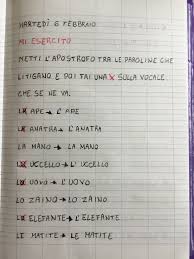 MARTEDÌ 6 FEBBRAIO
MI ESERCITO
METTI L'APOSTROFO TRA LE PAROLINE CHE
LITIGANO E POI FAI UNA X SULLA VOCALE
CHE SE NE VA.
LA APE → L'APE
LA ANATRA → L'ANATRA
LA MANO → LA MANO
LO UCCELLO → L'UCCELLO
LO UOVO → L'UOVO
LO ZAINO → LO ZAINO
LO ELEFANTE → L'ELEFANTE
LE MATITE → LE MATITE